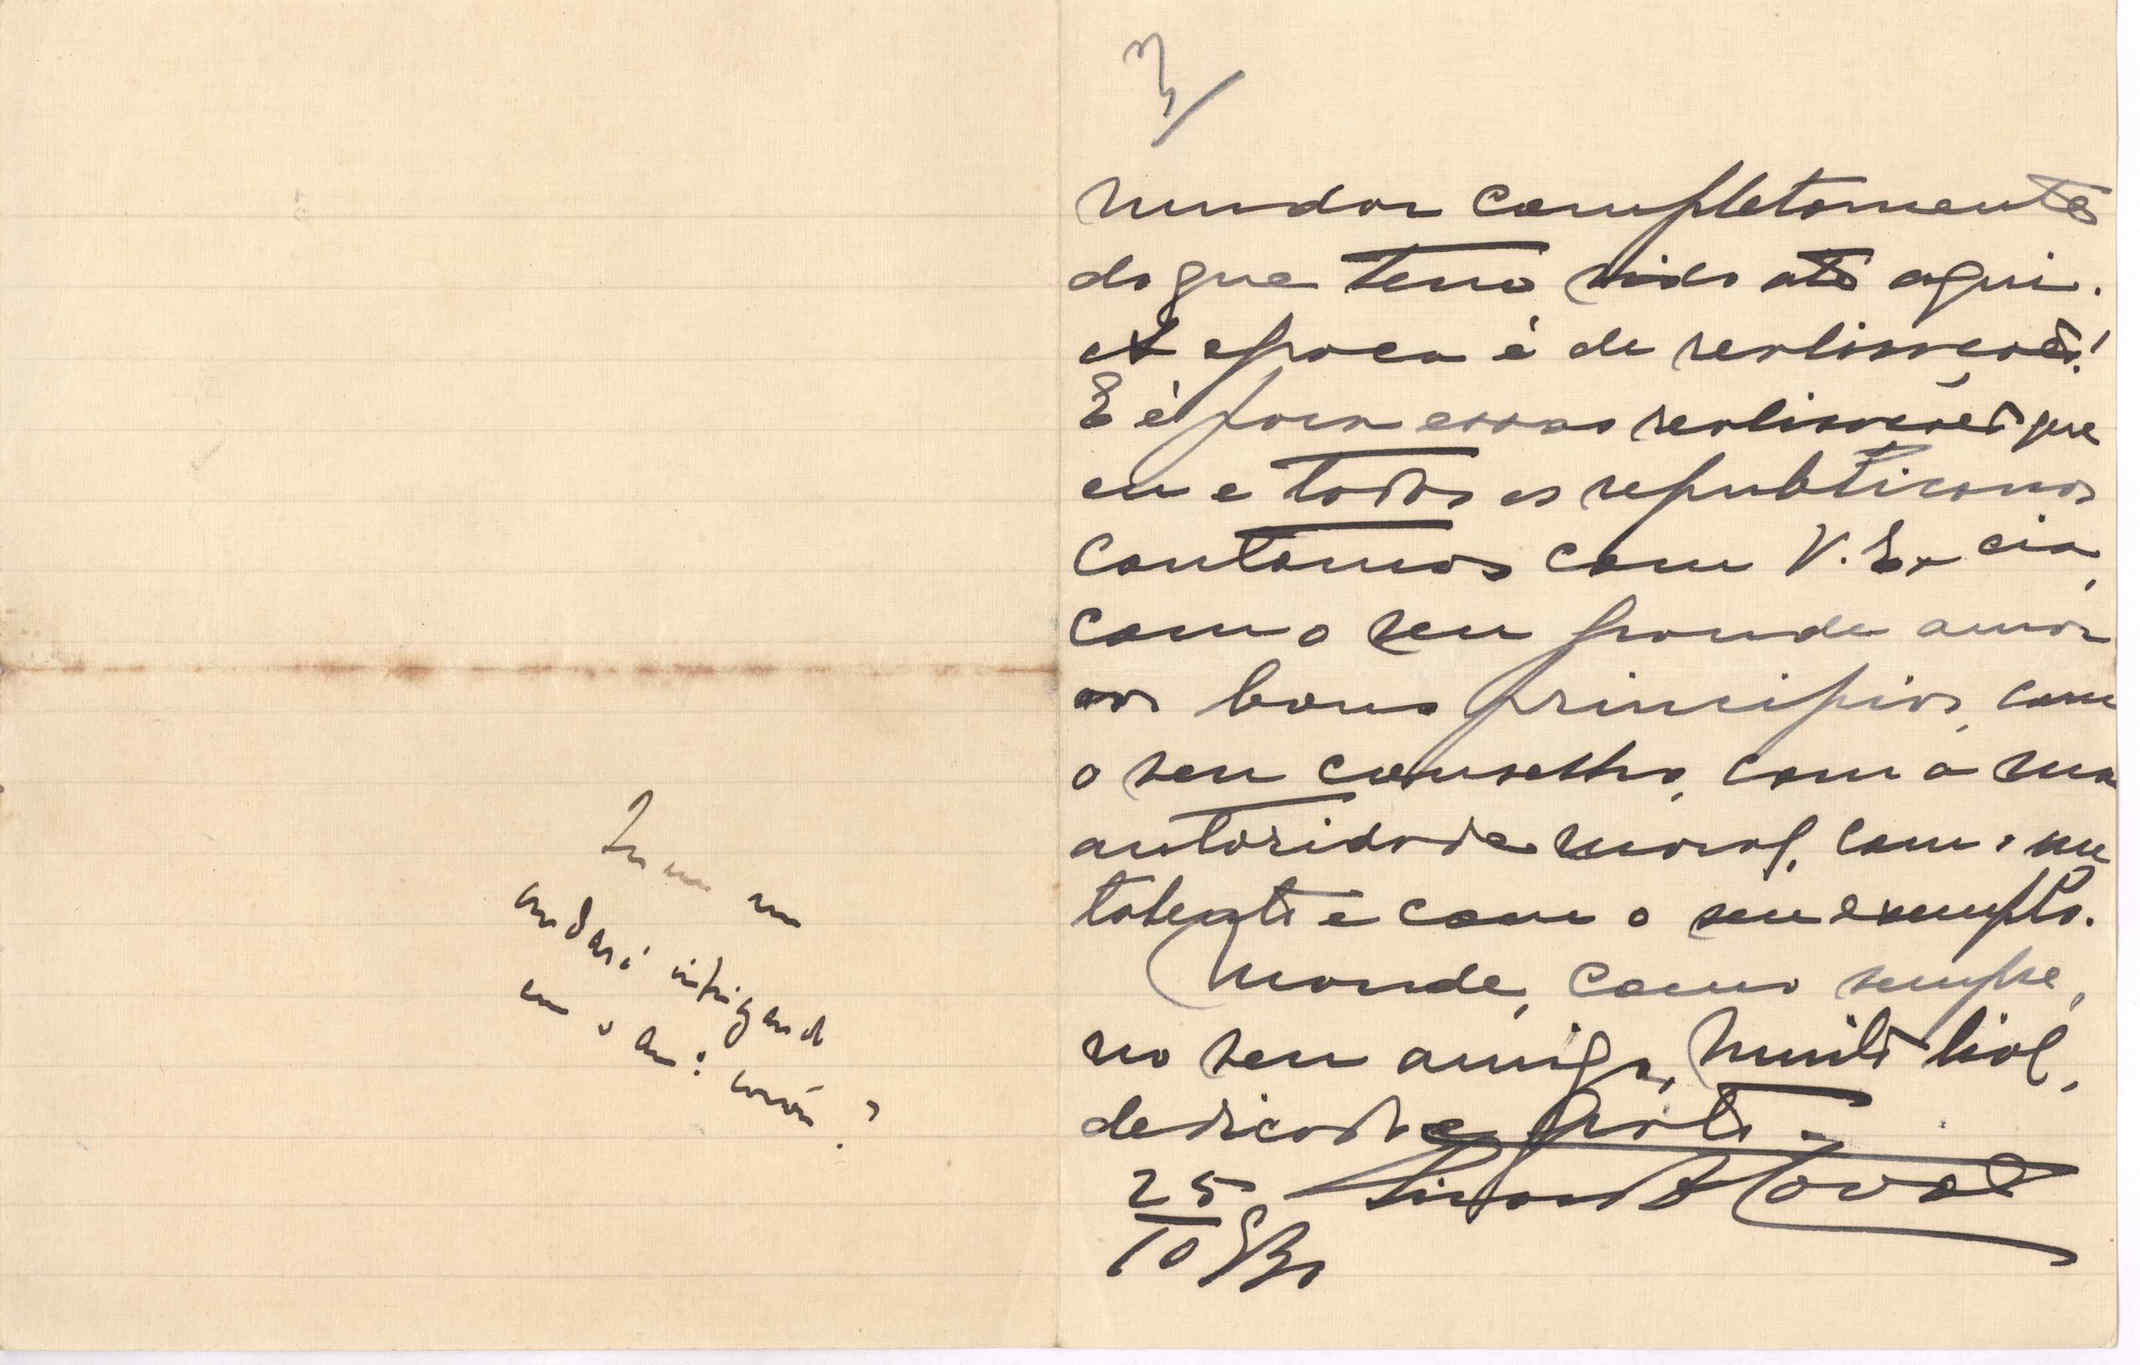 3/
mudar completamente
do que tem sido até aqui.
A epoca é de realisações!
E é para essas realisações que
eu e todos os republicanos
contamos com V. Ex cia,
com o seu grande amor
aos bons principios, com
o seu conselho, com a sua
autoridade moral, com o seu
talento e com o seu exemplo.
Mande, como sempre,
no seu amigo, muito leal,
dedicado e grato
25
10 930
andará intrigando
com o
?